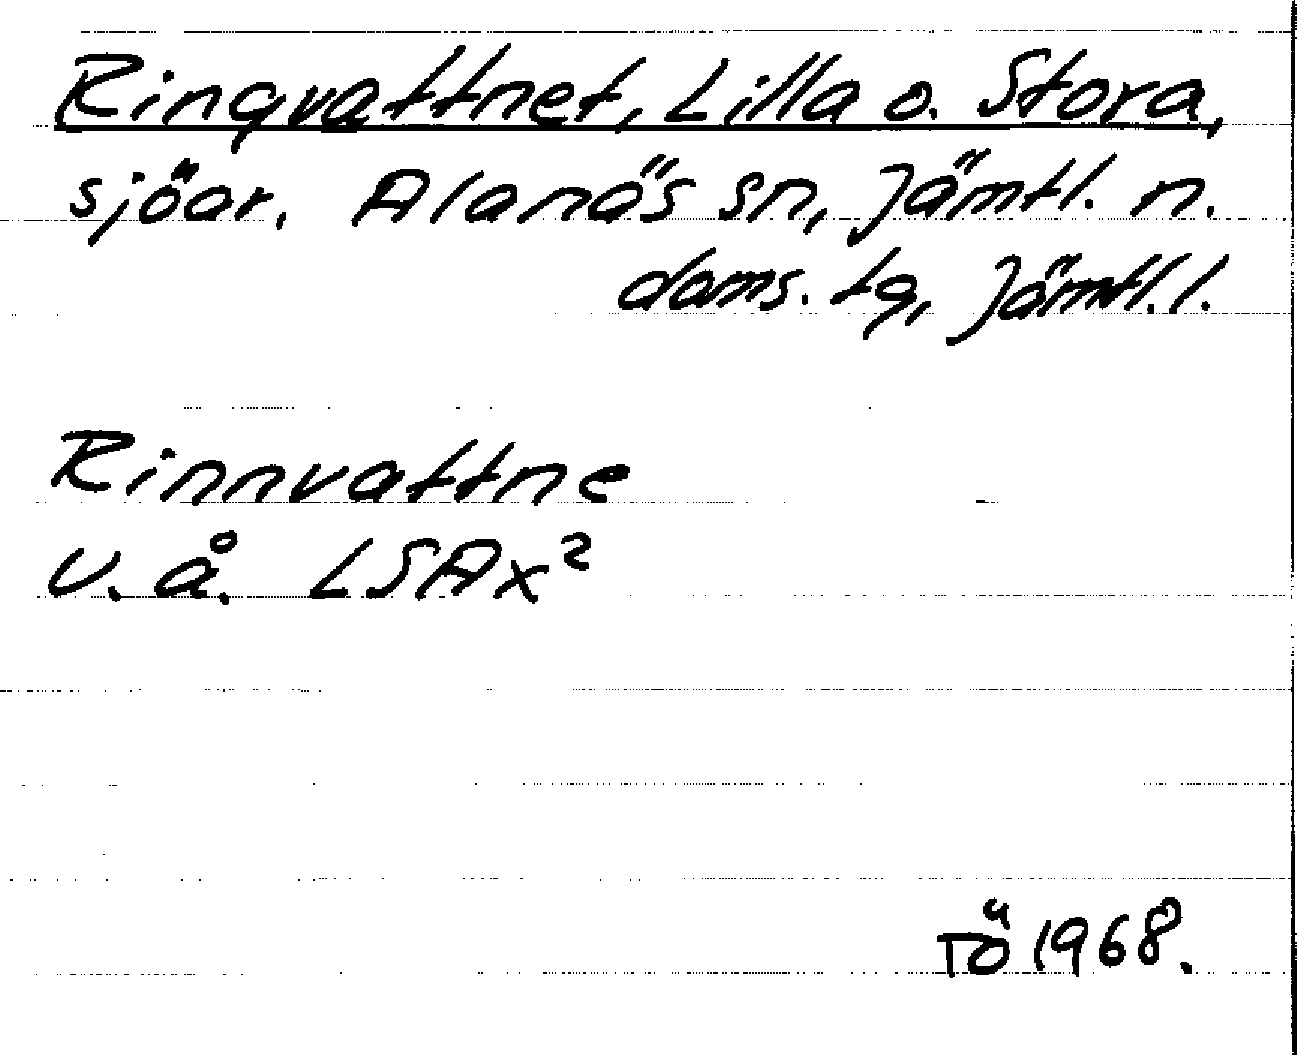 Ringvattnet, Lilla o. Stora,
sjöar. Alanäs sn, Jämtl. n.
doms. tg, Jämtl. l.
Rinnvattne
U. å. LSAx²
TÖ 1968.